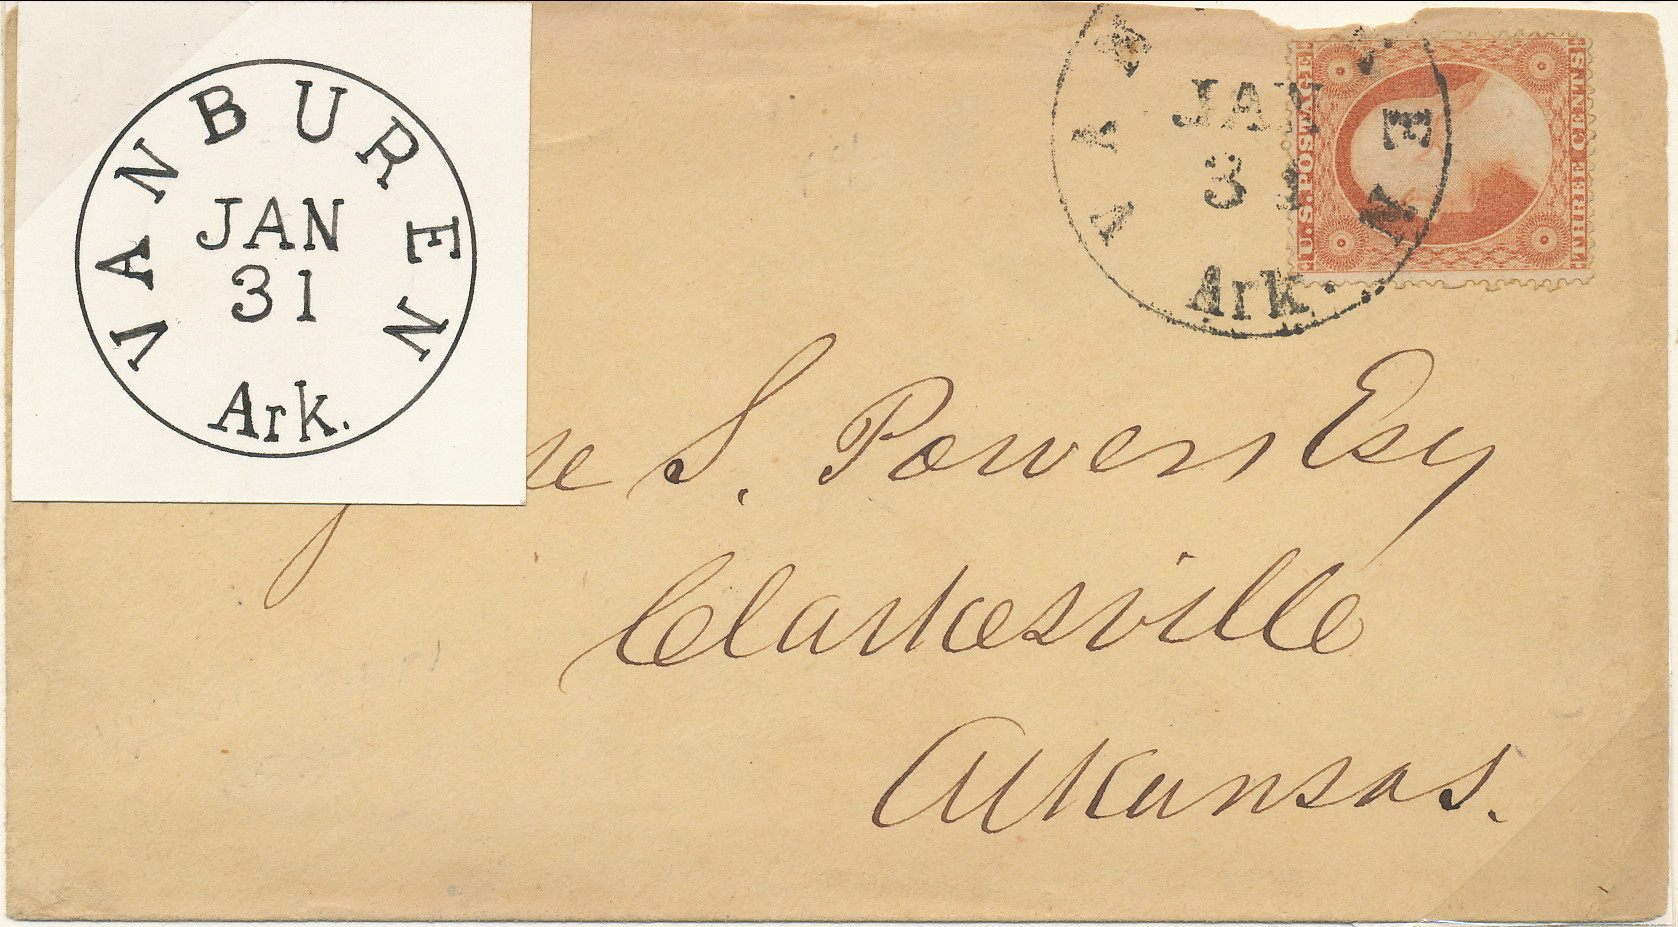 VAN BUREN
JAN
31
Ark.
VAN EN
JAN
31
Ark.
U.S. POSTAGE
THREE CENTS
S. Powers Esq
Clarkesville
Arkansas.